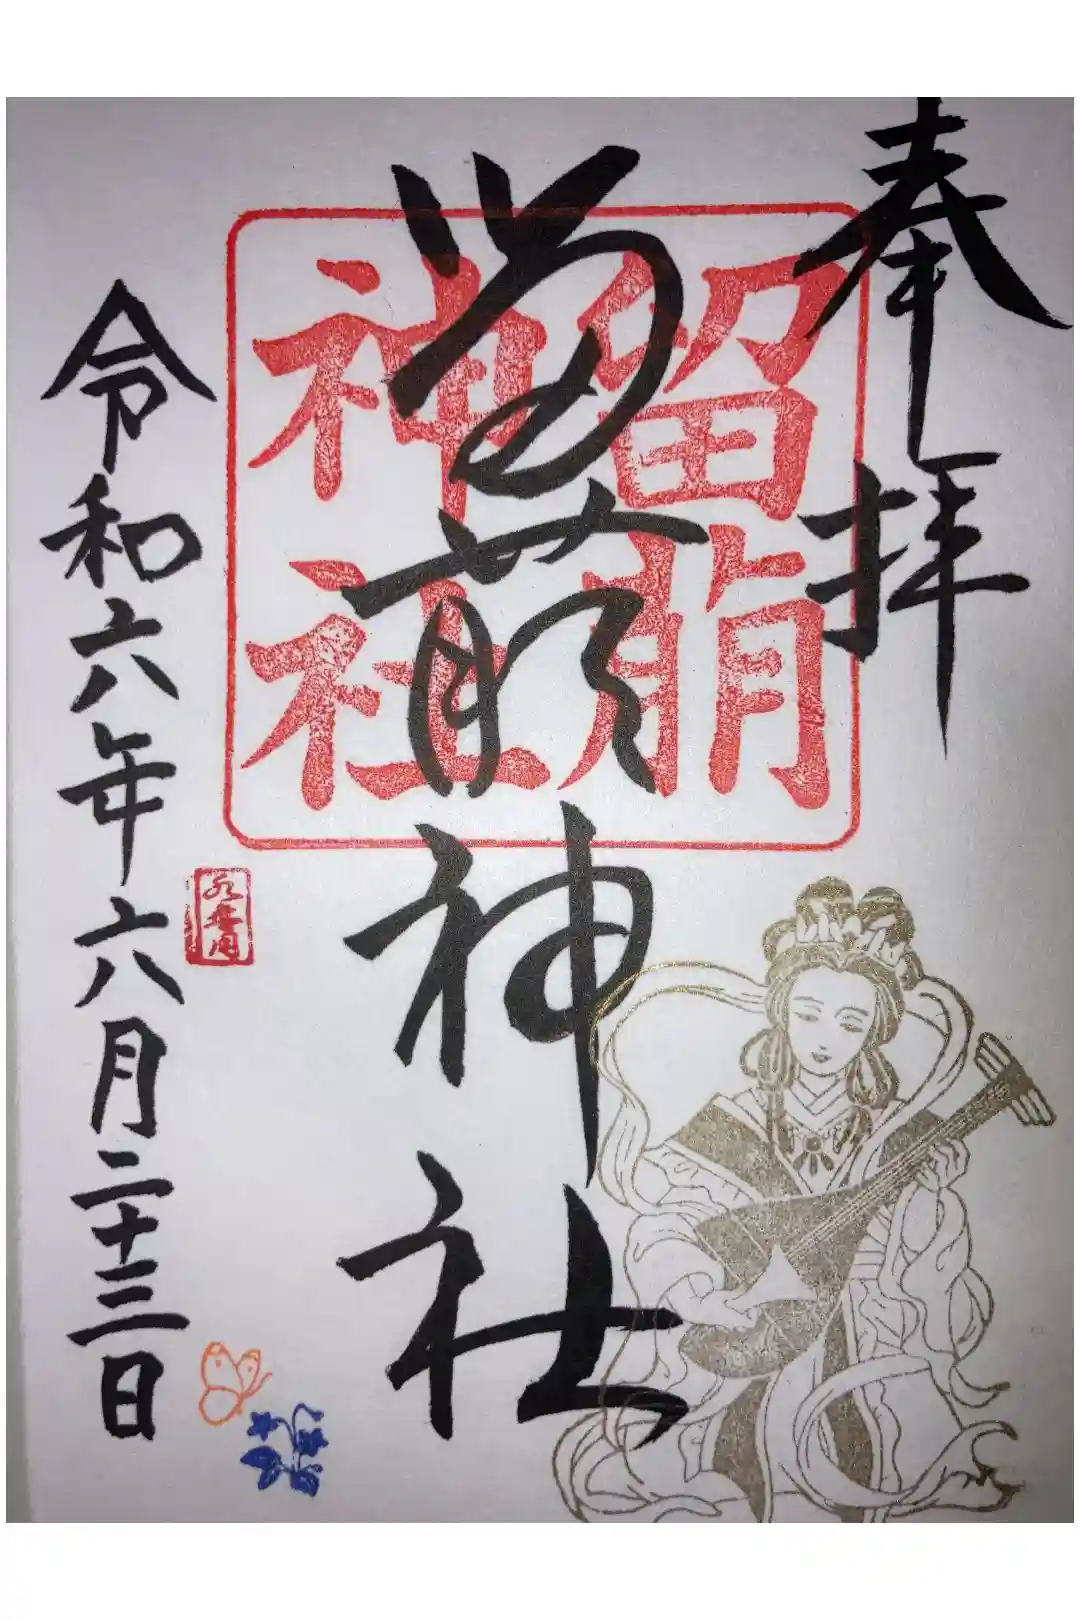 奉拝
留萌神社
留萌
神社
令和六年六月二十三日